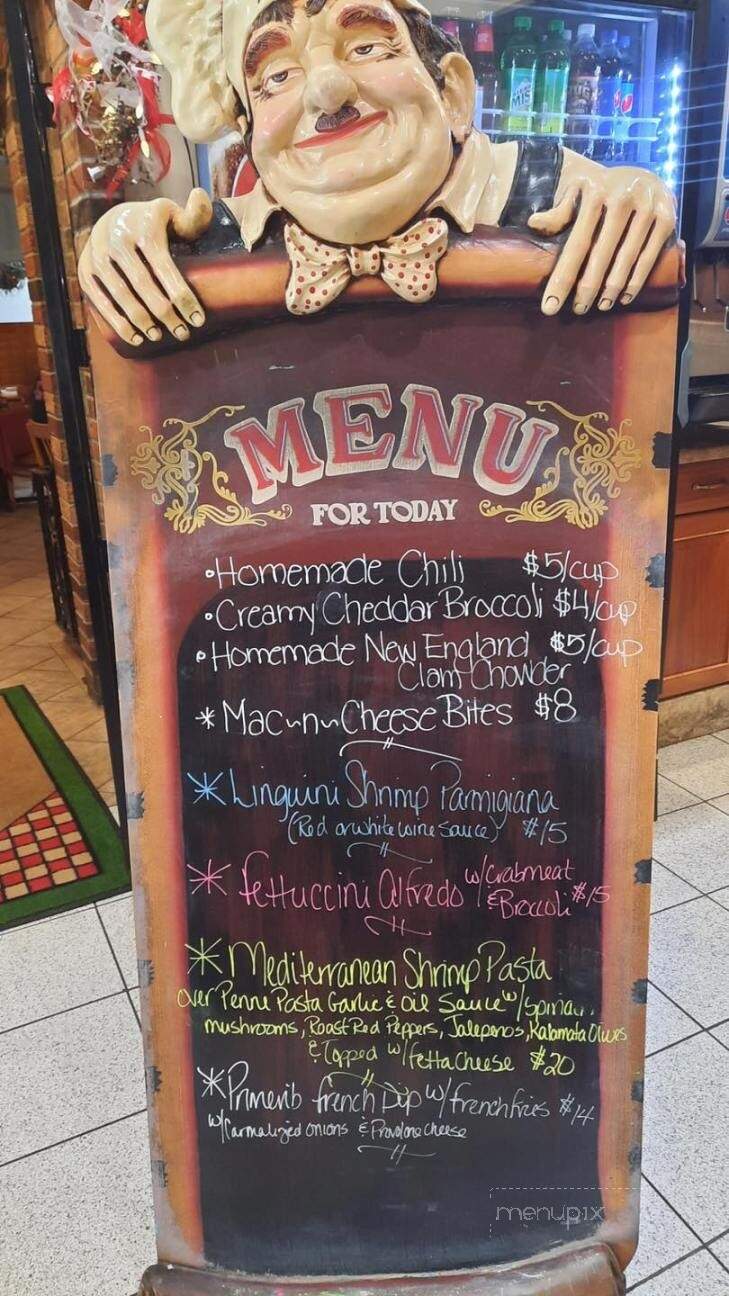 MENU
FOR TODAY
•Homemade Chili $5/cup
•Creamy Cheddar Broccoli $4/cup
•Homemade New England $5/cup
Clam Chowder
* Mac~n~Cheese Bites $8
* Linguini Shrimp Parmigiana
(Red or white wine sauce) $15
* Fettuccini Alfredo w/crabmeat
& Broccoli $15
* Mediterranean Shrimp Pasta
Over Penne Pasta Garlic & Oil Sauce w/
mushrooms, Roast Red Peppers, Jalepenos, Kalamata Olives
& Topped w/ Fetta Cheese $20
* Primerib french Dip w/frenchfries $14
w/Carmalized onions & Provolone cheese
menupix